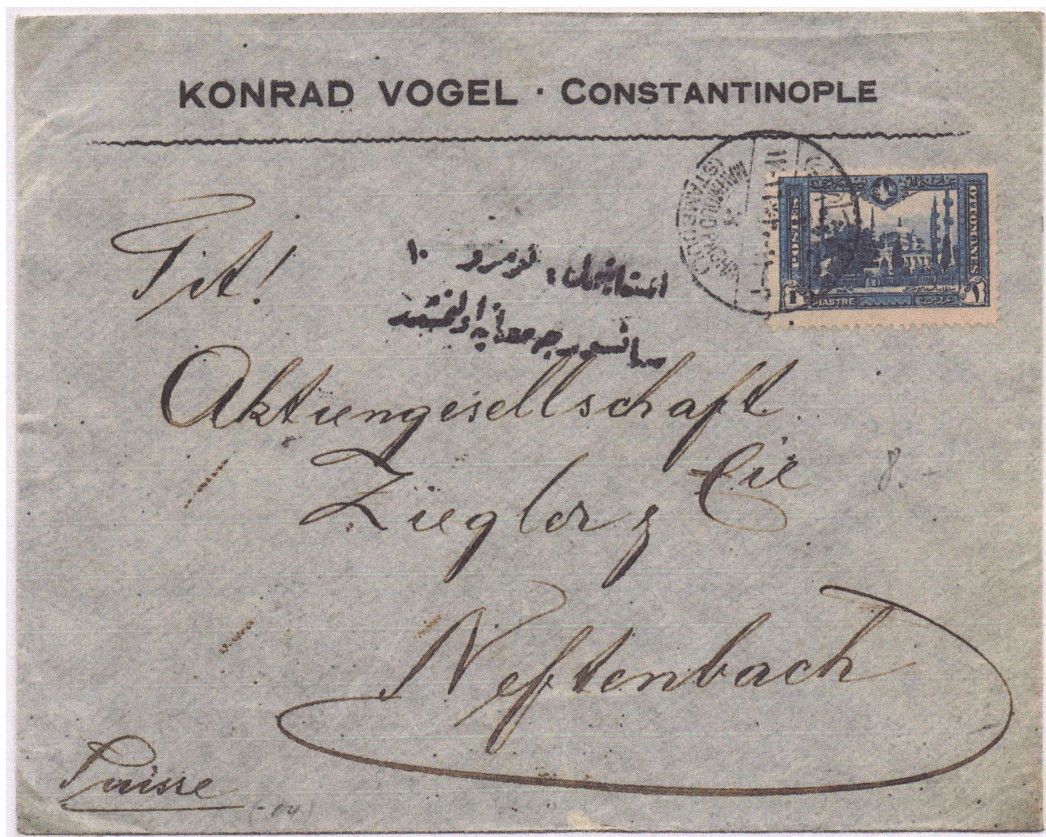 KONRAD VOGEL · CONSTANTINOPLE
POSTES OTTOMANES
1 PIASTRE ١
Tit!
استانبول نومرو ١٠
Aktiengesellschaft
Ziegler & Cie
8.-
Neftenbach
Suisse